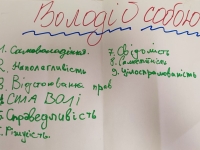 Володій собою
1. Самовладання.
2. Наполегливість
3. Відстоювання прав
4 СИЛА ВОЛІ
5. Справедливість
6. Рішучість.
7. Свідомість
8. Самостійність
9. Цілеспрямованість